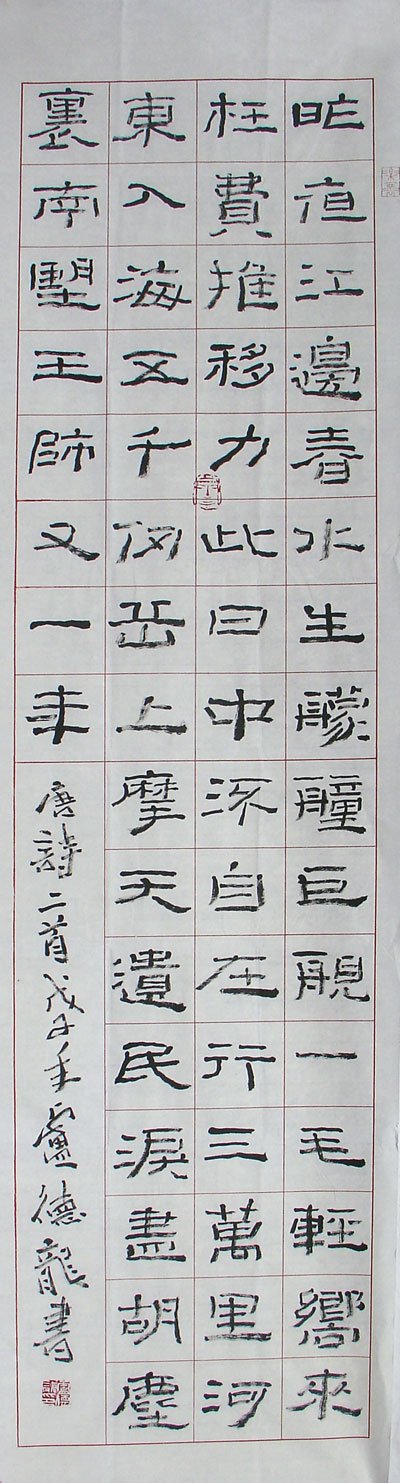 昨夜江邊春水生艨艟巨艦一毛輕嚮來
枉費推移力此日中流自在行三萬里河
東入海五千仞岳上摩天遺民淚盡胡塵
裏南望王師又一年
唐詩二首戊子年盧德龍書